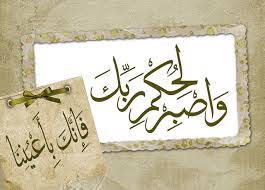 وَاصْبِرْ لِحُكْمِ رَبِّكَ
فَإِنَّكَ بِأَعْيُنِنَا